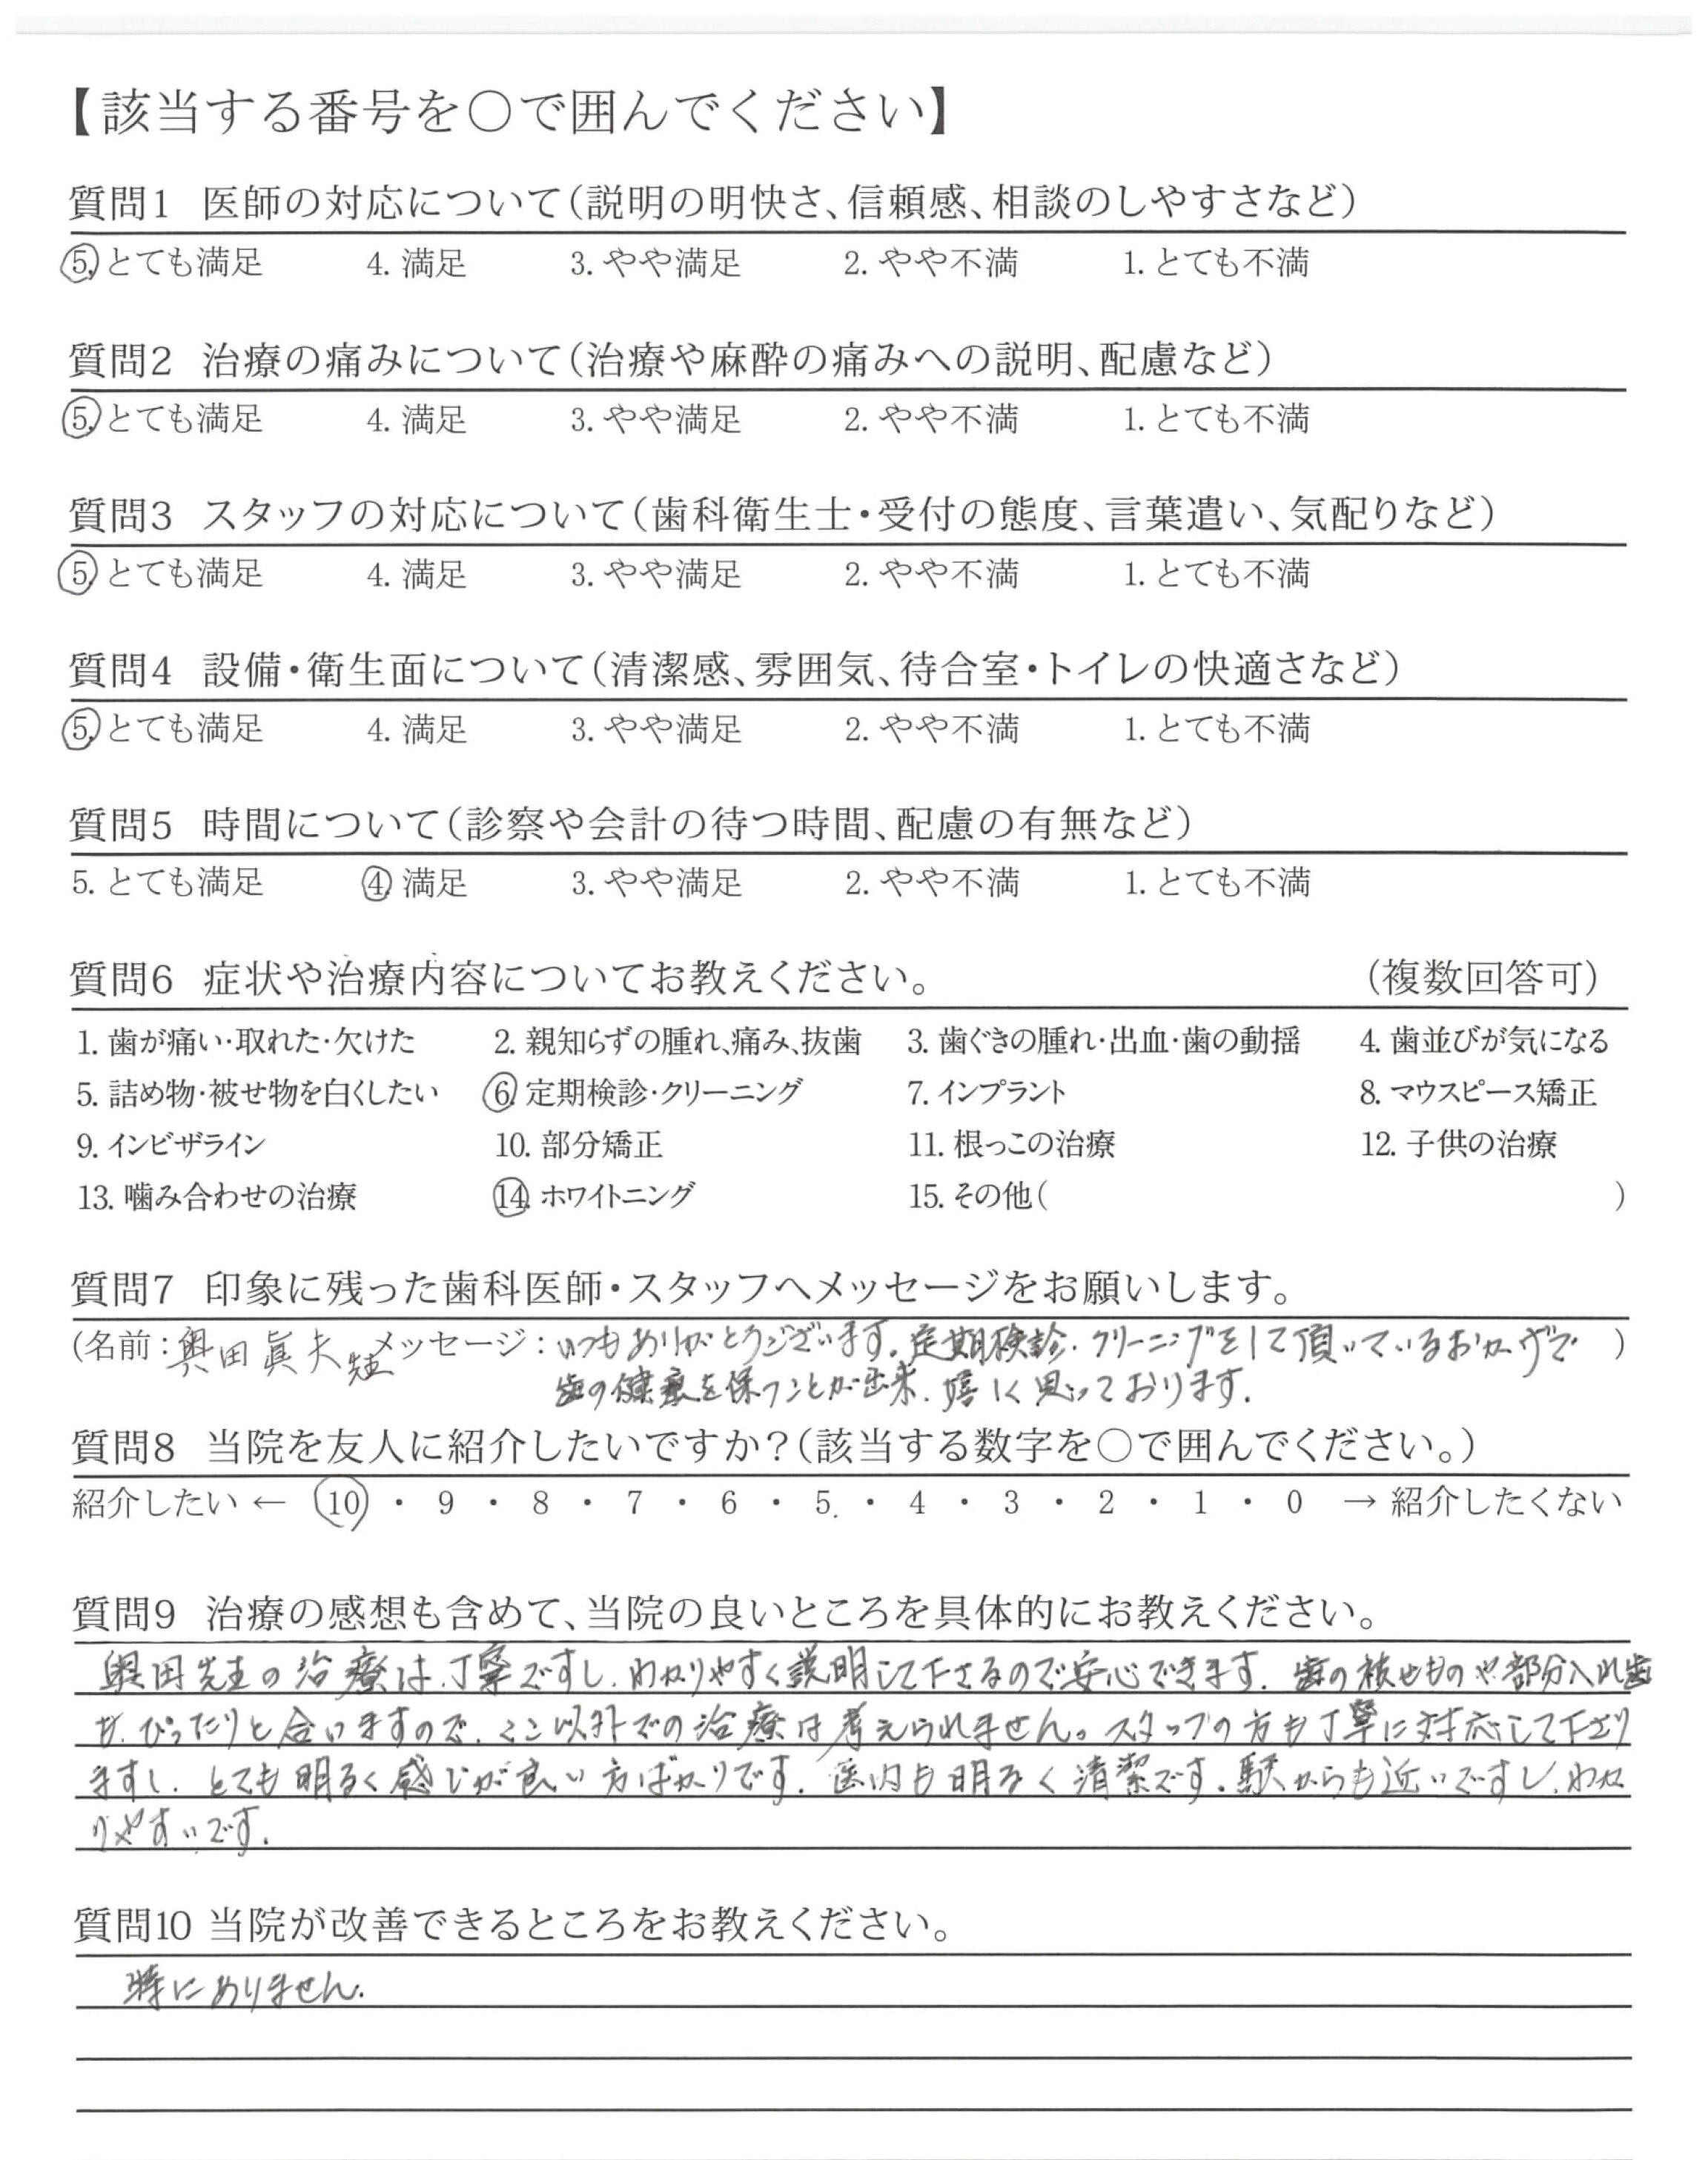 【該当する番号を○で囲んでください】
質問1 医師の対応について(説明の明快さ、信頼感、相談のしやすさなど)
5. とても満足 4. 満足 3. やや満足 2. やや不満 1. とても不満
質問2 治療の痛みについて(治療や麻酔の痛みへの説明、配慮など)
5. とても満足 4. 満足 3. やや満足 2. やや不満 1. とても不満
質問3 スタッフの対応について(歯科衛生士・受付の態度、言葉遣い、気配りなど)
5. とても満足 4. 満足 3. やや満足 2. やや不満 1. とても不満
質問4 設備・衛生面について(清潔感、雰囲気、待合室・トイレの快適さなど)
5. とても満足 4. 満足 3. やや満足 2. やや不満 1. とても不満
質問5 時間について(診察や会計の待つ時間、配慮の有無など)
5. とても満足 4. 満足 3. やや満足 2. やや不満 1. とても不満
質問6 症状や治療内容についてお教えください。 (複数回答可)
1. 歯が痛い・取れた・欠けた 2. 親知らずの腫れ、痛み、抜歯 3. 歯ぐきの腫れ・出血・歯の動揺 4. 歯並びが気になる
5. 詰め物・被せ物を白くしたい 6. 定期検診・クリーニング 7. インプラント 8. マウスピース矯正
9. インビザライン 10. 部分矯正 11. 根っこの治療 12. 子供の治療
13. 噛み合わせの治療 14. ホワイトニング 15. その他( )
質問7 印象に残った歯科医師・スタッフへメッセージをお願いします。
(名前:奥田眞夫先生 メッセージ:いつもありがとうございます。定期検診・クリーニングをして頂いているおかげで )
歯の健康を保つことが出来、嬉しく思っております。
質問8 当院を友人に紹介したいですか?(該当する数字を○で囲んでください。)
紹介したい ← 10 ・ 9 ・ 8 ・ 7 ・ 6 ・ 5 ・ 4 ・ 3 ・ 2 ・ 1 ・ 0 → 紹介したくない
質問9 治療の感想も含めて、当院の良いところを具体的にお教えください。
奥田先生の治療は、丁寧ですし、わかりやすく説明して下さるので安心できます。歯の被せものや部分入れ歯
も、ぴったりと合いますので、ここ以外での治療は考えられません。スタッフの方も丁寧に対応して下さり
ますし、とても明るく感じが良い方ばかりです。医内も明るく清潔です。駅からも近いですし、わか
りやすいです。
質問10 当院が改善できるところをお教えください。
特にありません。